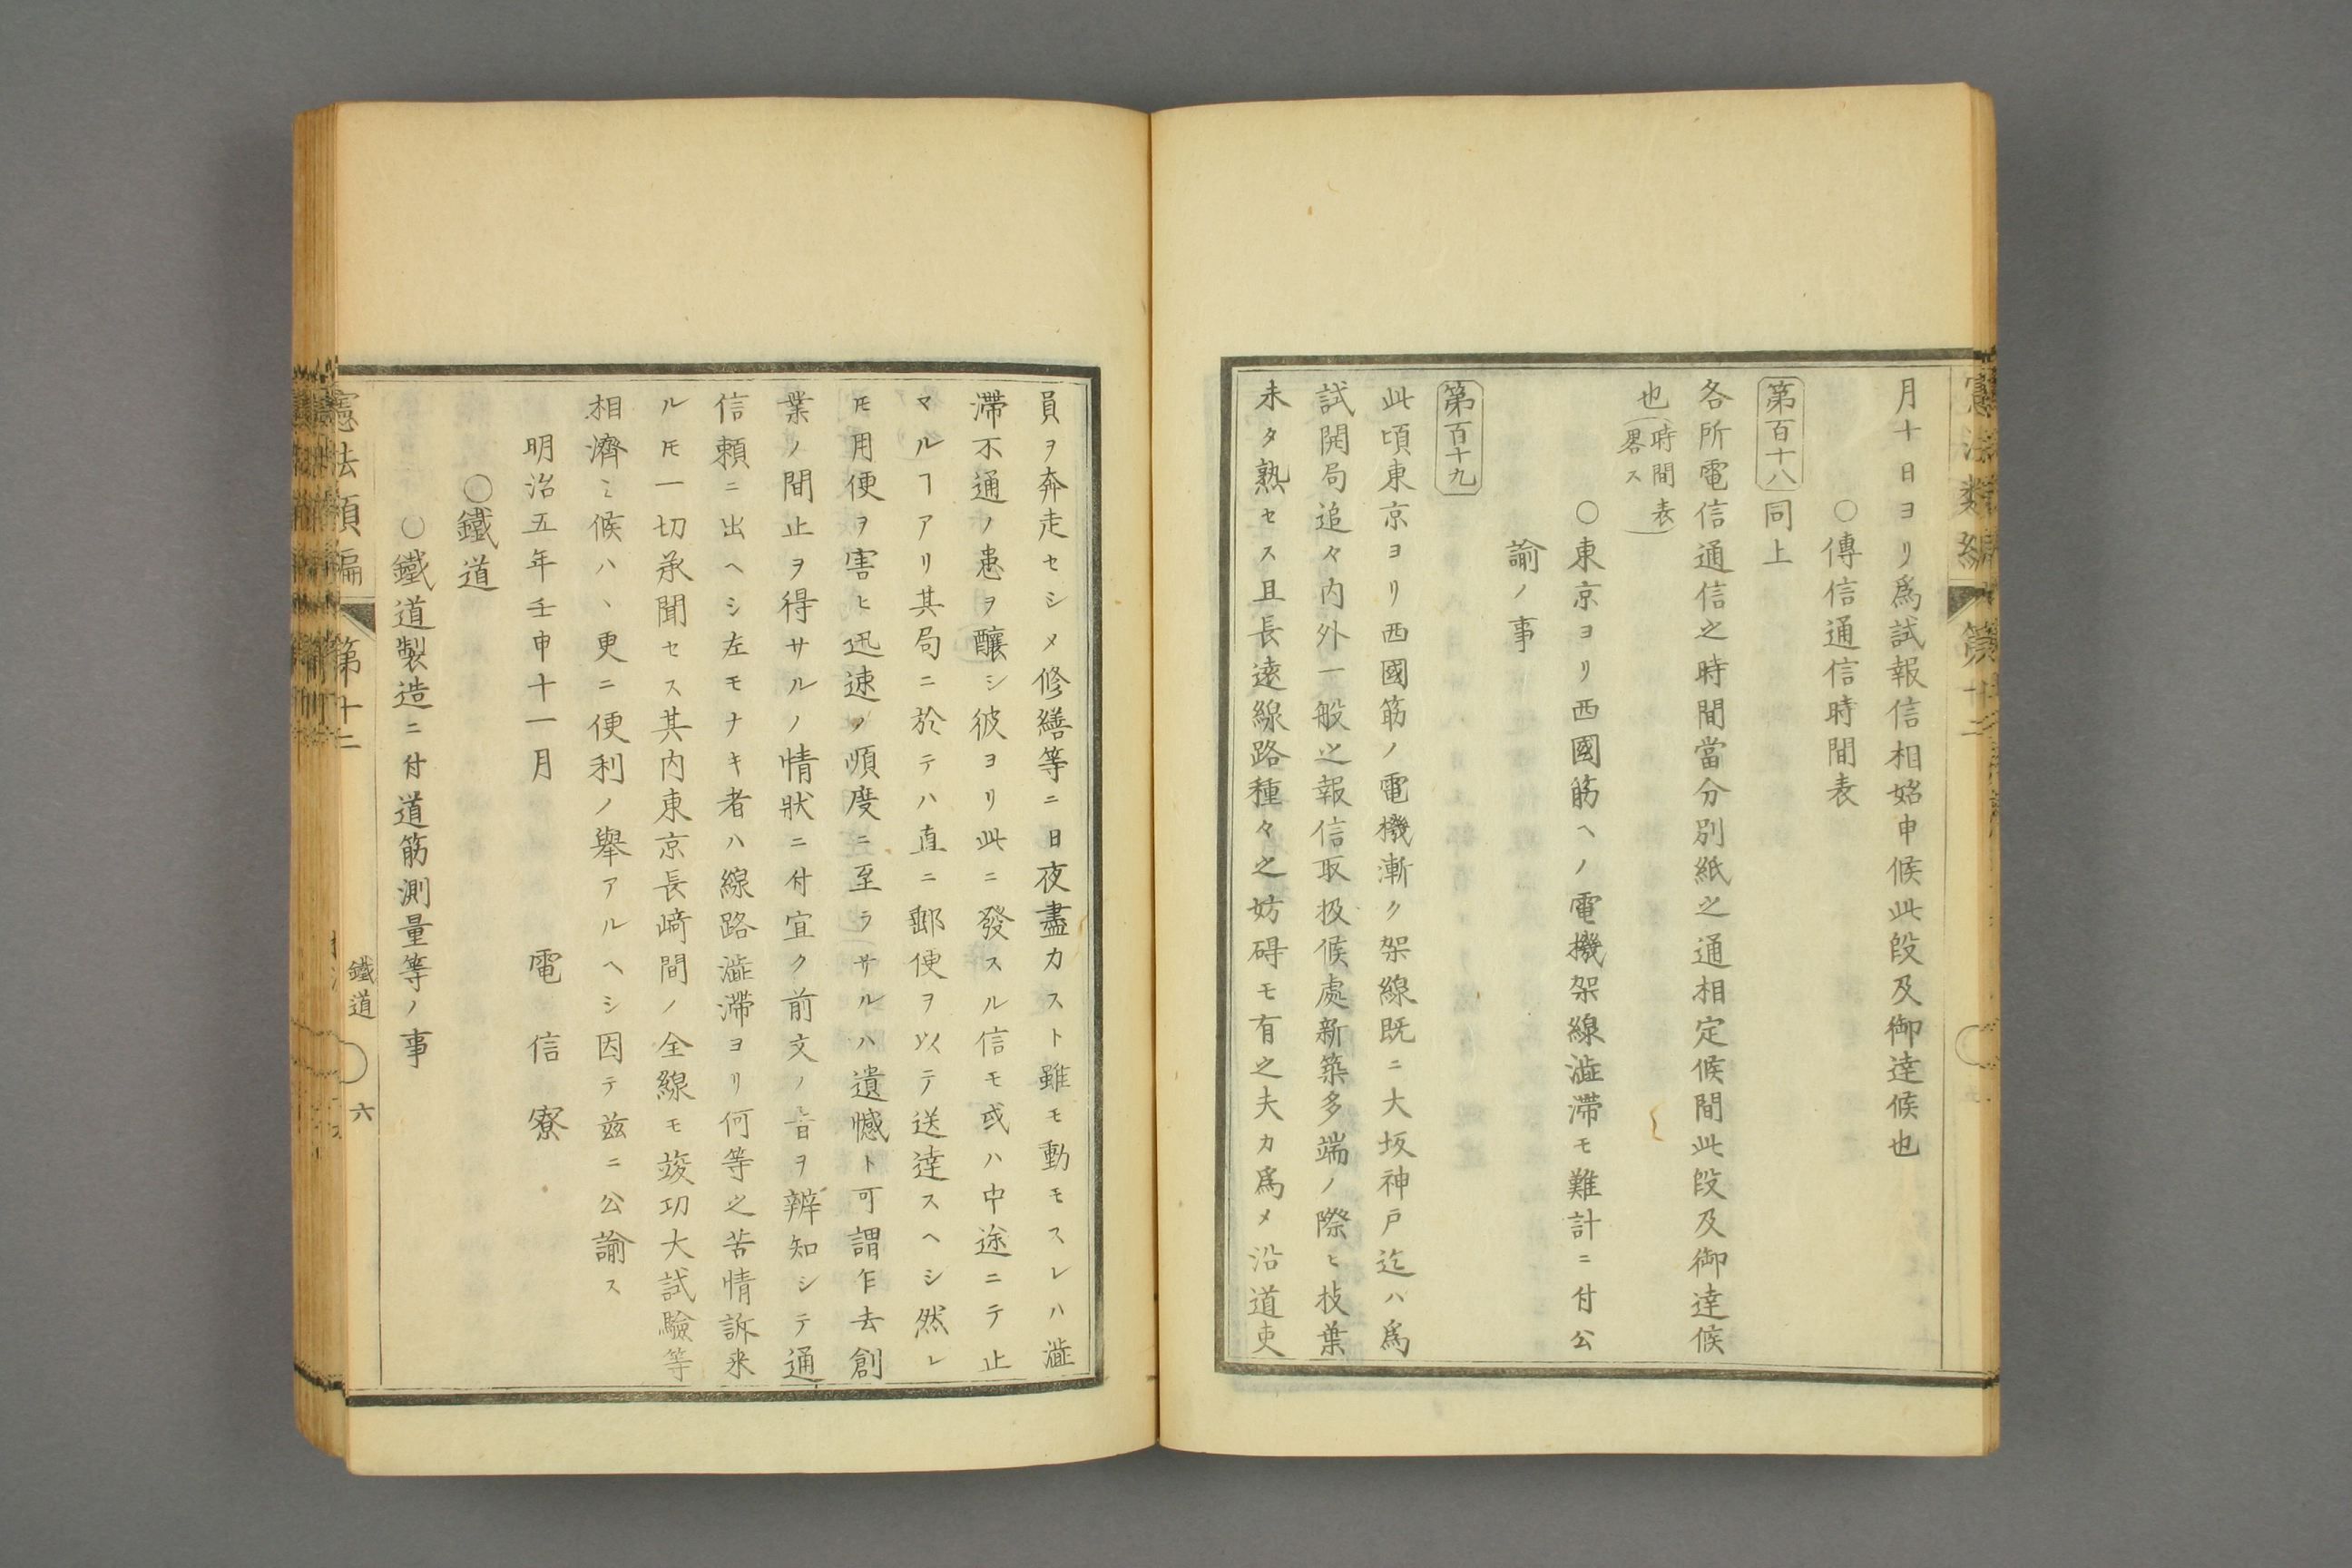 月十日ヨリ爲試報信相始申候此段及御達候也
○傳信通信時間表
第百十八 同上
各所電信通信之時間當分別紙之通相定候間此段及御達候
也(時間表
畧ス)
○東京ヨリ西國筋ヘノ電機架線澁滯モ難計ニ付公
諭ノ事
第百十九
此頃東京ヨリ西國筋ノ電機漸ク架線既ニ大坂神戸迄ハ爲
試開局追々内外一般之報信取扱候處新築多端ノ際ヒ枝葉
未タ熟セス且長遠線路種々之妨碍モ有之夫カ爲メ沿道吏
員ヲ奔走セシメ修繕等ニ日夜盡力スト雖モ動モスレハ澁
滯不通ノ患ヲ釀シ彼ヨリ此ニ發スル信モ或ハ中途ニテ止
マルヿアリ其局ニ於テハ直ニ郵便ヲ以テ送達スヘシ然レ
𪜈用便ヲ害ヒ迅速ノ順度ニ至ラサルハ遺憾ト可謂乍去創
業ノ間止ヲ得サルノ情狀ニ付宜ク前文ノ旨ヲ辨知シテ通
信頼ニ出ヘシ左モナキ者ハ線路澁滯ヨリ何等之苦情訴来
ル𪜈一切承聞セス其内東京長崎間ノ全線モ竣功大試驗等
相濟ミ候ハヽ更ニ便利ノ舉アルヘシ因テ茲ニ公諭ス
明治五年壬申十一月　電信寮
○鐵道
○鐵道製造ニ付道筋測量等ノ事
憲法類編 第十二 鐵道 六